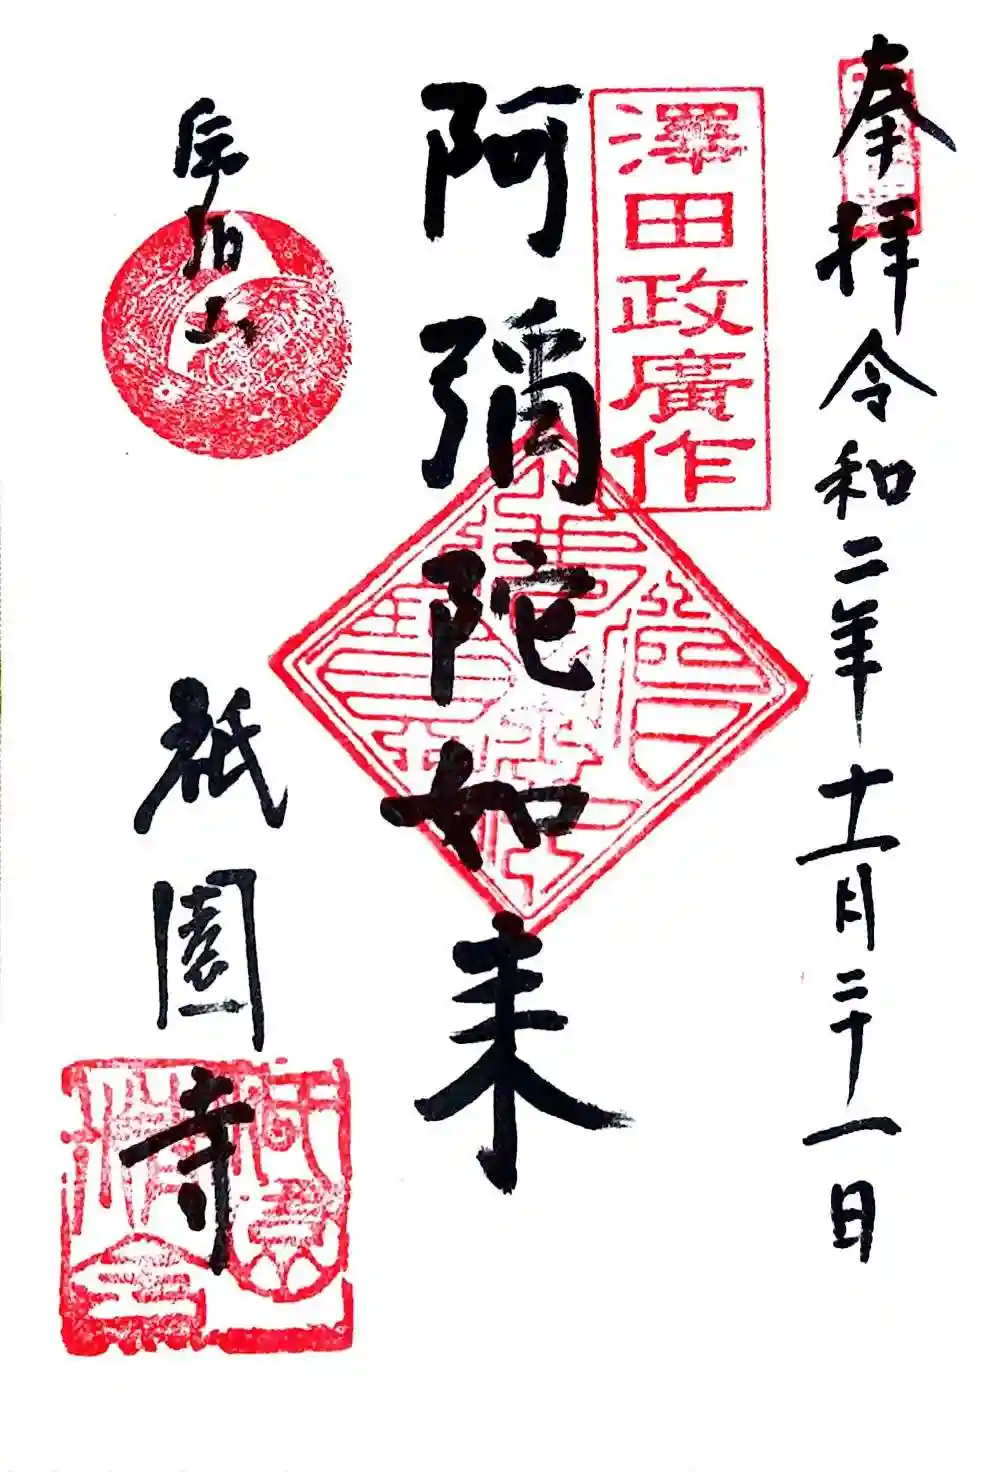 奉拝 令和二年十一月二十一日
澤田政廣作
阿彌陀如来
信泊山
祇園寺